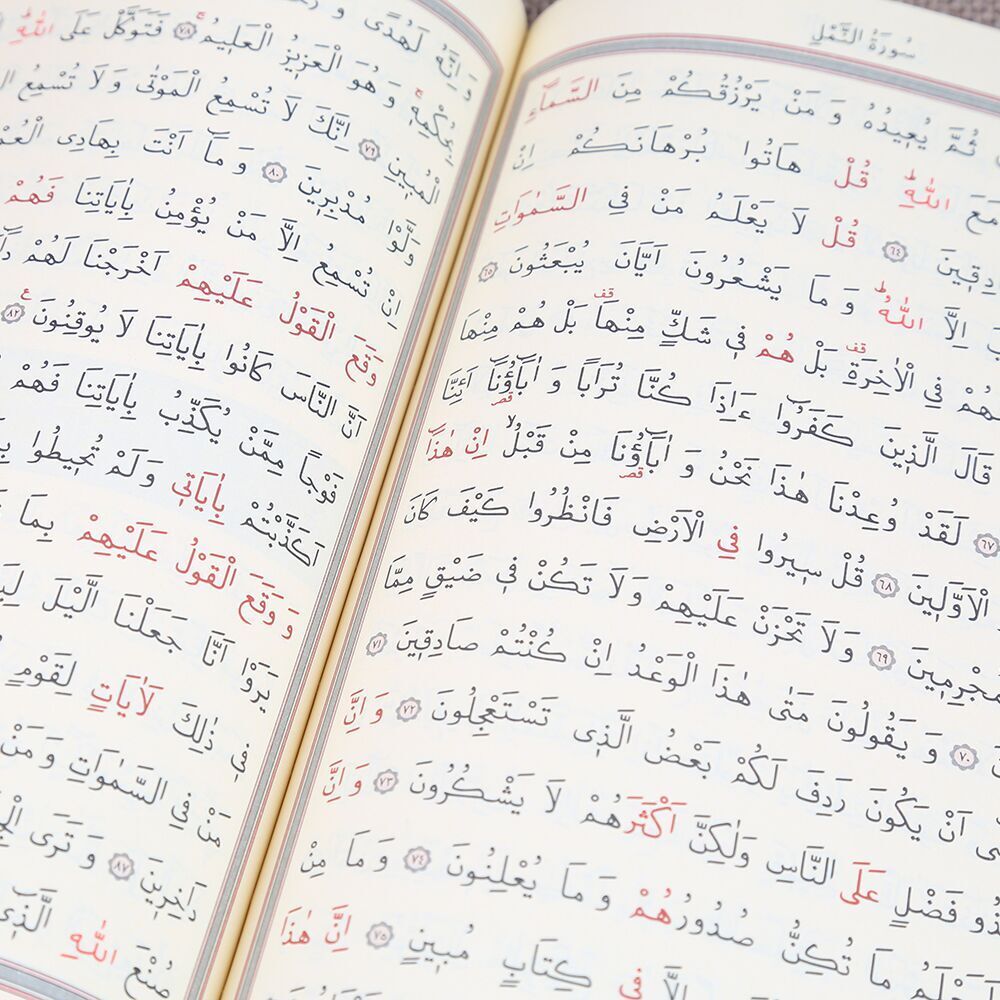 سُورَةُ النَّمْلِ
ثُمَّ يُعٖيدُهُ وَ مَنْ يَرْزُقُكُمْ مِنَ السَّمَٓاءِ
اللّٰهِ قُلْ هَاتُوا بُرْهَانَكُمْ اِنْ
﴿٦٤﴾ قُلْ لَا يَعْلَمُ مَنْ فِي السَّمٰوَاتِ
اِلَّا اللّٰهُ وَ مَا يَشْعُرُونَ اَيَّانَ يُبْعَثُونَ ﴿٦٥﴾
فِي الْاٰخِرَةِ بَلْ هُمْ فٖي شَكٍّ مِنْهَا بَلْ هُمْ مِنْهَا
قَالَ الَّذٖينَ كَفَرُٓوا ءَاِذَا كُنَّا تُرَابًا وَ اٰبَٓاؤُنَٓا اَئِنَّا
﴿٦٧﴾ لَقَدْ وُعِدْنَا هٰذَا نَحْنُ وَ اٰبَٓاؤُنَا مِنْ قَبْلُ اِنْ هٰذَٓا
الْاَوَّلٖينَ ﴿٦٨﴾ قُلْ سٖيرُوا فِي الْاَرْضِ فَانْظُرُوا كَيْفَ كَانَ
﴿٦٩﴾ وَ لَا تَحْزَنْ عَلَيْهِمْ وَ لَا تَكُنْ فٖي ضَيْقٍ مِمَّا
﴿٧٠﴾ وَ يَقُولُونَ مَتٰى هٰذَا الْوَعْدُ اِنْ كُنْتُمْ صَادِقٖينَ ﴿٧١﴾
اَنْ يَكُونَ رَدِفَ لَكُمْ بَعْضُ الَّذٖي تَسْتَعْجِلُونَ ﴿٧٢﴾ وَ اِنَّ
فَضْلٍ عَلَى النَّاسِ وَلٰكِنَّ اَكْثَرَهُمْ لَا يَشْكُرُونَ ﴿٧٣﴾ وَ اِنَّ
مَا تُكِنُّ صُدُورُهُمْ وَ مَا يُعْلِنُونَ ﴿٧٤﴾ وَ مَا مِنْ
اِلَّا فٖي كِتَابٍ مُبٖينٍ ﴿٧٥﴾ اِنَّ هٰذَا
وَ اِنَّهُ لَهُدًى وَ
بِحُكْمِهٖ وَ هُوَ الْعَزٖيزُ الْعَلٖيمُ ﴿٧٨﴾ فَتَوَكَّلْ عَلَى اللّٰهِ
الْمُبٖينِ ﴿٧٩﴾ اِنَّكَ لَا تُسْمِعُ الْمَوْتٰى وَ لَا تُسْمِعُ
وَلَّوْا مُدْبِرٖينَ ﴿٨٠﴾ وَ مَٓا اَنْتَ بِهَادِي
اِنْ تُسْمِعُ اِلَّا مَنْ يُؤْمِنُ بِاٰيَاتِنَا فَهُمْ
وَقَعَ الْقَوْلُ عَلَيْهِمْ اَخْرَجْنَا لَهُمْ
اَنَّ النَّاسَ كَانُوا بِاٰيَاتِنَا لَا يُوقِنُونَ ﴿٨٢﴾
فَوْجًا مِمَّنْ يُكَذِّبُ بِاٰيَاتِنَا فَهُمْ
اَكَذَّبْتُمْ بِاٰيَاتٖي وَلَمْ تُحٖيطُوا
وَ وَقَعَ الْقَوْلُ عَلَيْهِمْ بِمَا
يَرَوْا اَنَّا جَعَلْنَا الَّيْلَ
فٖي ذٰلِكَ لَاٰيَاتٍ لِقَوْمٍ
مَنْ فِي السَّمٰوَاتِ وَ مَنْ
دَاخِرٖينَ ﴿٨٧﴾ وَ تَرَى
صُنْعَ اللّٰهِ الَّذٖٓي